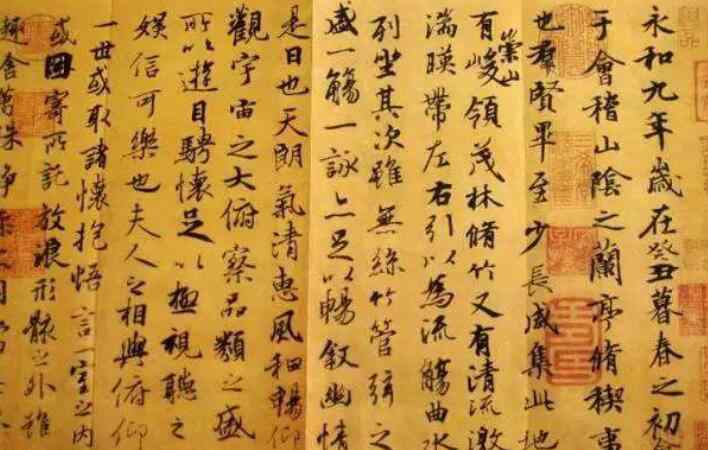 永和九年歲在癸丑暮春之初會
于會稽山陰之蘭亭脩稧事
也羣賢畢至少長咸集此地
有崇山峻領茂林脩竹又有清流激
湍暎帶左右引以為流觴曲水
列坐其次雖無絲竹管弦之
盛一觴一詠亦足以暢敘幽情
是日也天朗氣清惠風和暢仰
觀宇宙之大俯察品類之盛
所以遊目騁懷足以極視聽之
娛信可樂也夫人之相與俯仰
一世或取諸懷抱悟言一室之內
或因寄所託放浪形骸之外雖
趣舍萬殊靜躁不同